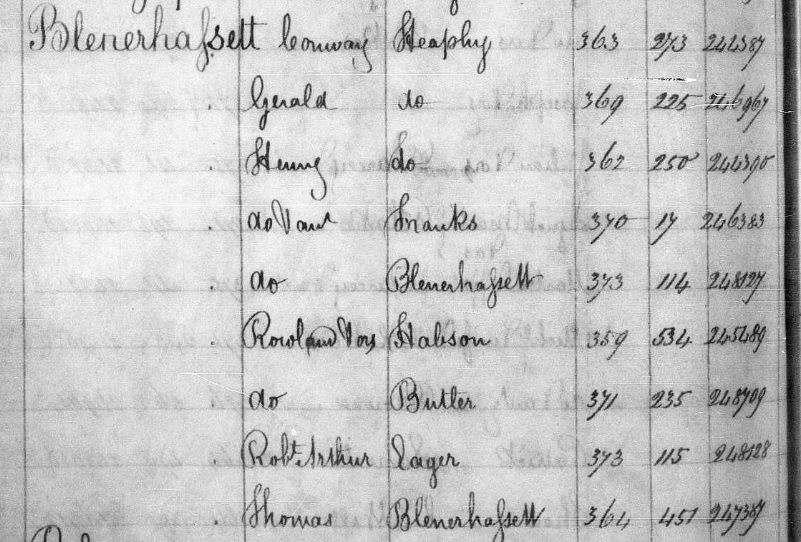 Blenerhassett Conway Heaphy 363 273 242387
Gerald do 369 225 246967
Henry do 362 250 244390
do Franks 370 17 246383
do Blenerhassett 373 114 248127
Rowland Hobson 359 534 245489
do Butler 371 235 248709
Robt Arthur Eager 373 115 248128
Thomas Blenerhassett 364 451 247387